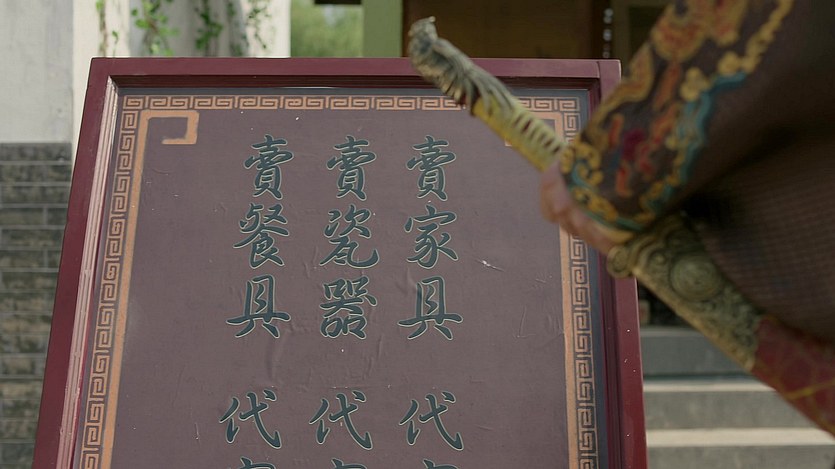 賣家具 代
賣瓷器 代
賣餐具 代